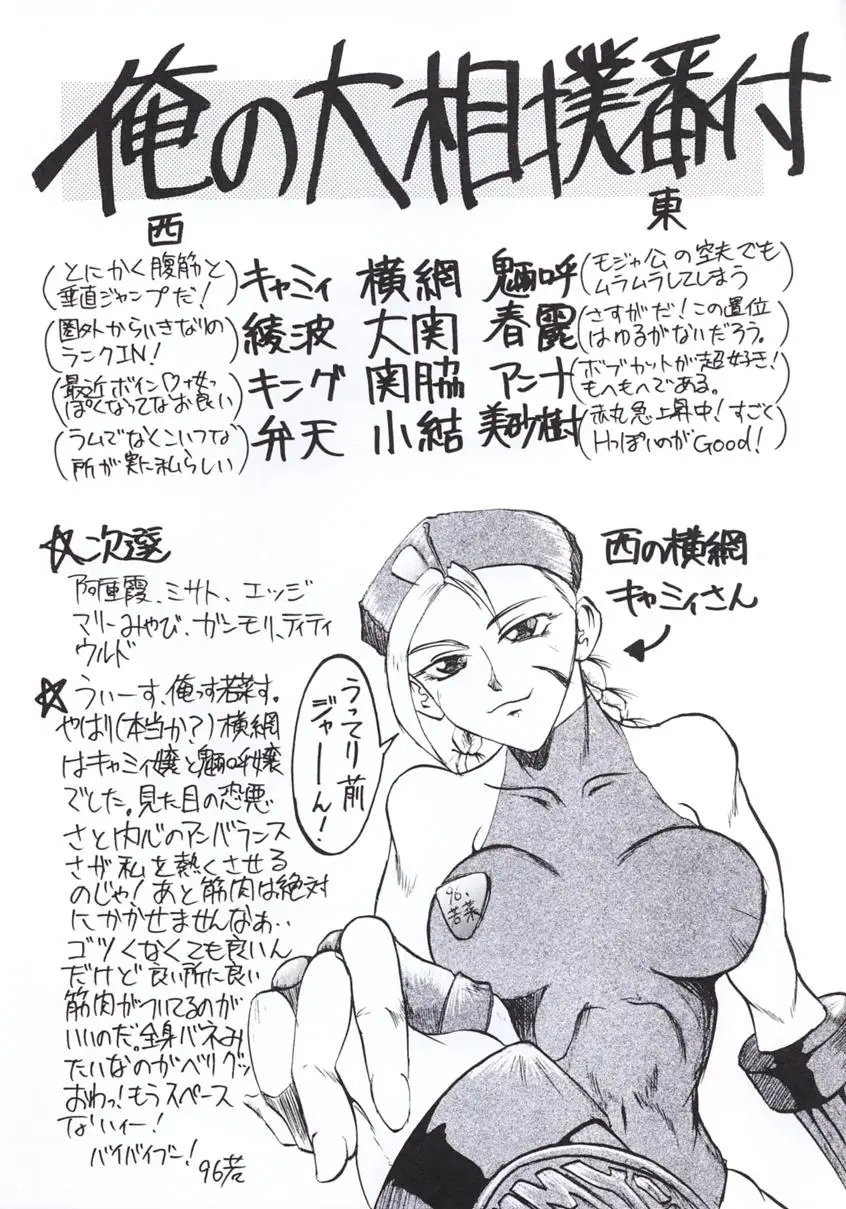 俺の大相撲番付
西
東
(とにかく腹筋と
垂直ジャンプだ!)
キャミィ 横綱 魎呼
(モジャ公の空夫でも
ムラムラしてしまう)
(圏外からいきなりの
ランクIN!)
綾波 大関 春麗
(さすがだ!この置位
はゆるがないだろう。)
(最近ボイン♡女っ
ぽくなってなお良い)
キング 関脇 アンナ
(ボブカットが超好き!
もへもへである。)
(ラムでなくこいつな
所が実に私らしい)
弁天 小結 美砂樹
(赤丸急上昇中!すごく
Hっぽいのが Good!)
☆次選
阿重霞、ミサト、エッジ
マリーみやび、ガンモリ、ティティ
ウルド
西の横綱
キャミィさん
うってり前
ジャーーん!
☆うぃーす、俺っす若菜す。
やはり(本当か?)横綱
はキャミィ嬢と魎呼嬢
でした。見た目の恐悪
さと内心のアンバランス
さが私を熱くさせる
のじゃ!あと筋肉は絶対
にかかせませんなぁ..
ゴツくなくても良いん
だけど良い所に良い
筋肉がついてるのが
いいのだ。全身バネみ
たいなのがベリグッ
おわっ!もうスペース
ないィー!
バイバイブー!
96若
96、
若菜